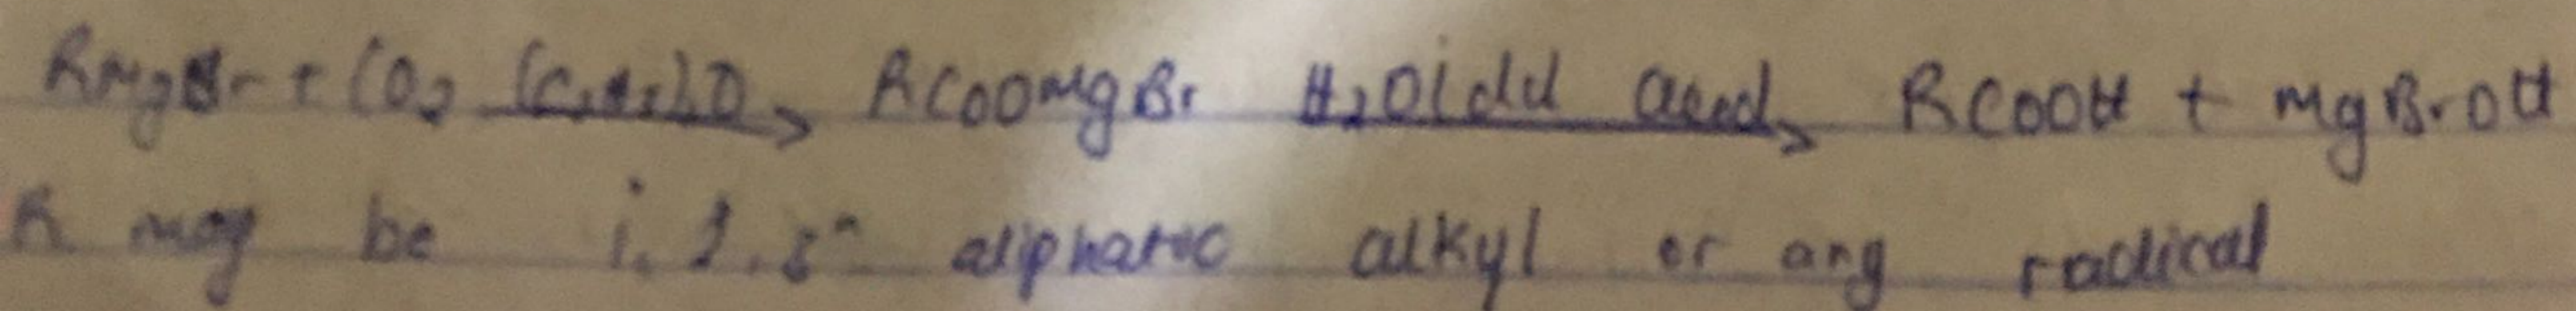 RMgBr + CO2 (C2H5)2O → RCOOMgBr H2O/dil acid → RCOOH + MgBrOH
R may be 1, 2, 3° aliphatic alkyl or any radical